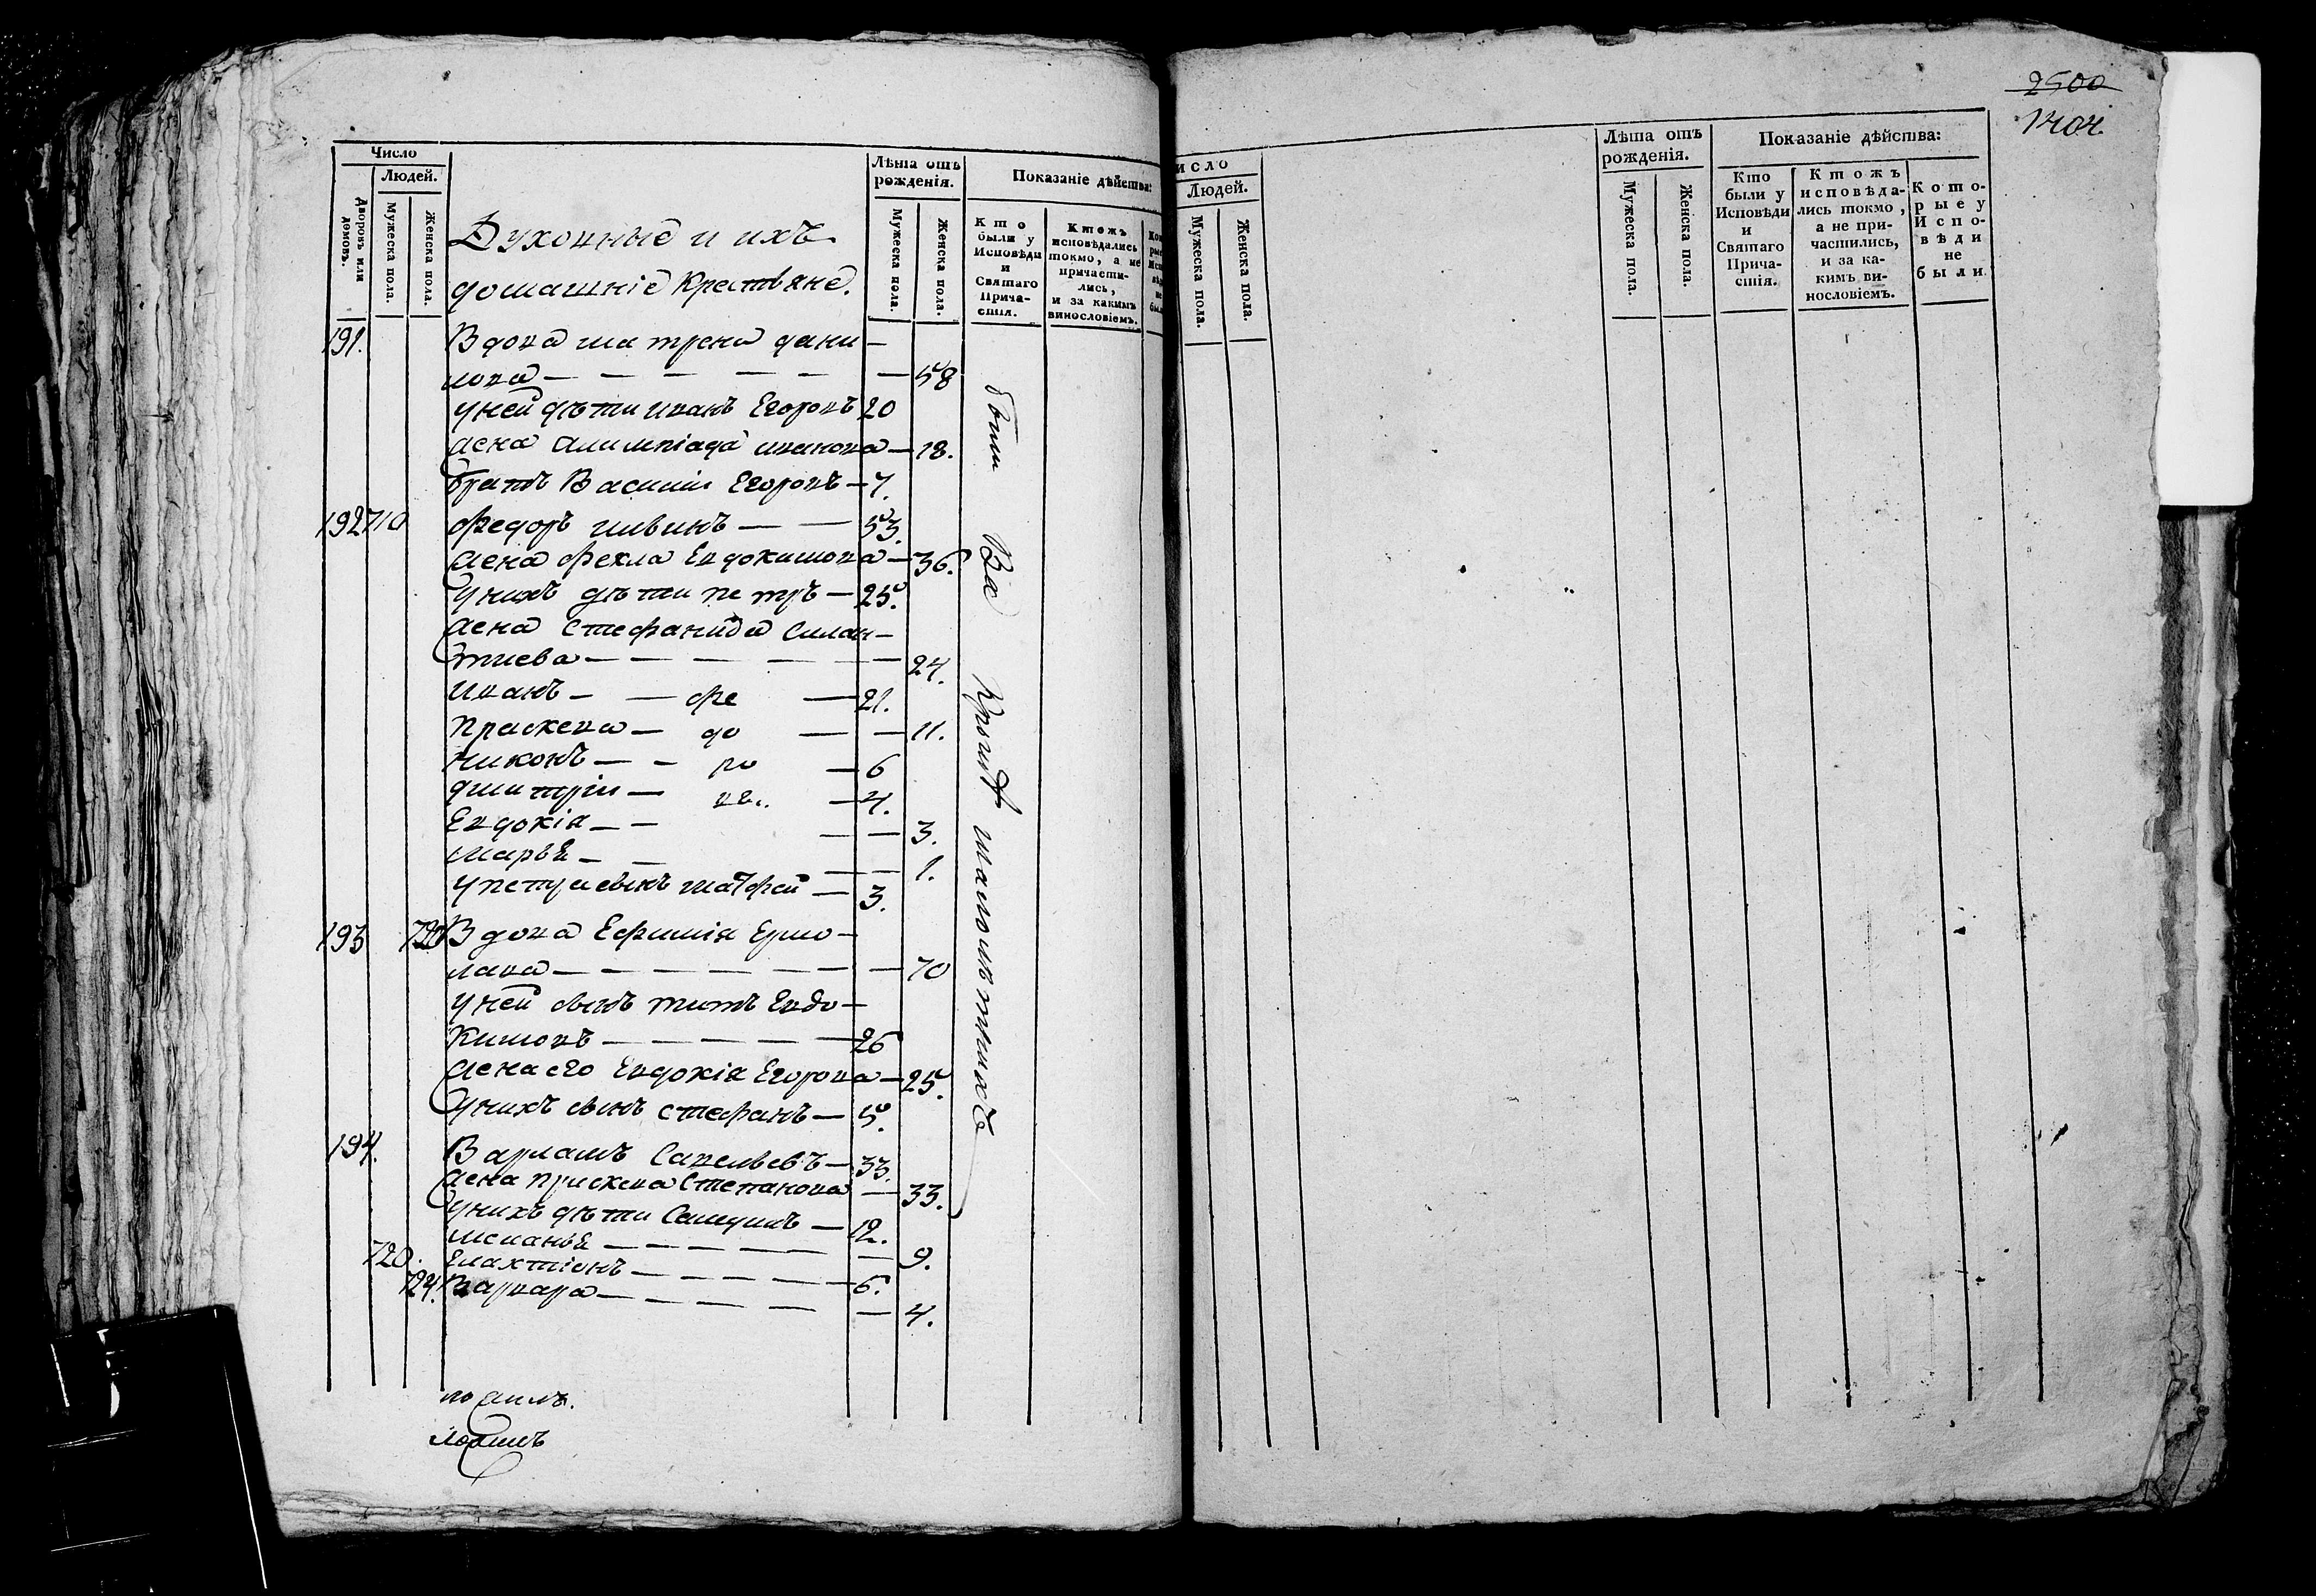 Число
Людей.
Дворовъ или домовъ.
Мужеска пола.
Женска пола.
Духовные и ихъ
домашніе Крестьяне.
Лѣта отъ
рожденія.
Мужеска пола.
Женска пола.
Показаніе дѣйства:
Кто
были у
Исповѣди
и
Святаго
Прича-
стія.
Ктожъ
исповѣдались
токмо, а не
причасти-
лись,
и за какимъ
винословіемъ.
191. Вдова Матрена Дани —
лова — — — — — — 58
у ней дѣти Иванъ Егоровъ 20
жена Алимпіада Иванова — 18.
братъ Василій Егоровъ — 7.
192 710 Федоръ Ильинъ — — 53.
жена Фекла Евдокимова — 36.
у нихъ дѣти Петръ — 25.
жена Стефанида Силан —
тиева — — — — — — 24.
Иванъ — — Фе — 21.
Праскева — до — — 11.
Никонъ — — ро — 6
Дмитрій — вы. — 4.
Евдокія — — — — 3.
Марья — — — — 1.
у Петра сынъ Матфей — 3.
193 Вдова Ефимія Ермо —
лава — — — — — — — 70
у ней сынъ Титъ Евдо —
кимовъ — — — — — 26
жена его Евдокія Егорова — 25.
у нихъ сынъ Стефанъ — 5.
194. Варламъ Савельевъ — 33.
жена Праскева Степанова — 33.
у нихъ дѣти Самуилъ — 12.
Меланья — — — — — — 9.
720. Елахтіонъ — — — — — 6.
724. Варвара — — — — — — 4.
были Вѣ Кромѣ малолѣтнихъ
2500
1404.
исло
Людей.
Мужеска пола.
Женска пола.
Лѣта отъ
рожденія.
Мужеска пола.
Женска пола.
Показаніе дѣйства:
Кто
были у
Исповѣди
и
Святаго
Прича-
стія.
Ктожъ
исповѣда-
лись токмо,
а не при-
частились,
и за ка-
кимъ ви-
нословіемъ.
Кото-
рые у
Испо-
вѣди
не
были.